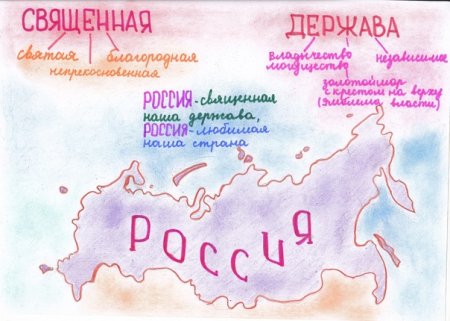 СВЯЩЕННАЯ
святая благородная
неприкосновенная
ДЕРЖАВА
владычество независимое
могущество
золотой шар
с крестом на верху
(эмблема власти)
РОССИЯ-священная
наша держава,
РОССИЯ-любимая
наша страна
РОССИЯ